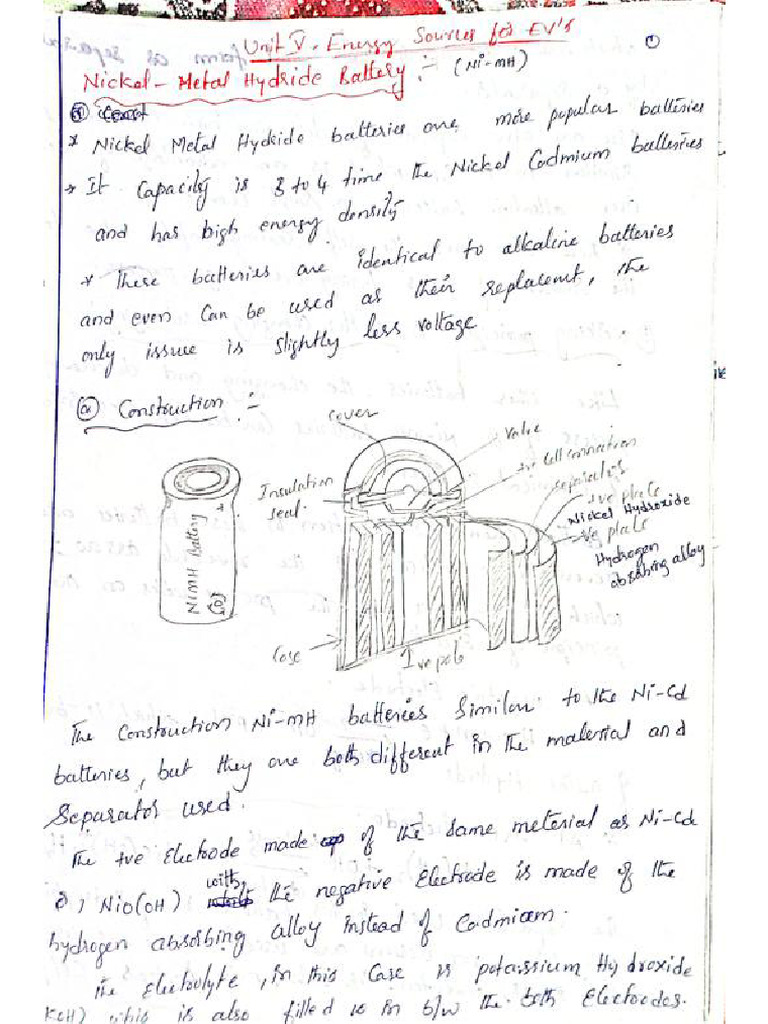 Unit V. Energy Sources for EV's
①
Nickel-Metal Hydride Battery :- (Ni-MH)
* Nickel Metal Hydride batteries are more popular batteries
* It Capacity is 3 to 4 time the Nickel Cadmium batteries
and has high energy density
* These batteries are identical to alkaline batteries
and even Can be used as their replacemt, the
only issue is slightly less voltage
ⓐ Construction :-
Cover
Valve
+ve Cell Connection
Separators
+ve plate
Nickel Hydroxide
-ve plate
Hydrogen
absorbing alloy
Insulation
seal
NiMH Battery
+
Case
-ve pole
The Construction Ni-mH batteries Similar to the Ni-Cd
batteries, but they are both different in the material and
Separator used.
The +ve Electrode made of the same meterial as Ni-Cd
NiO(OH) with the negative Electrode is made of the
hydrogen absorbing alloy instead of Cadmiam.
The Electrolyte, in this Case is potassium Hydroxide
KOH) is also filled in b/w the both Electrodes.